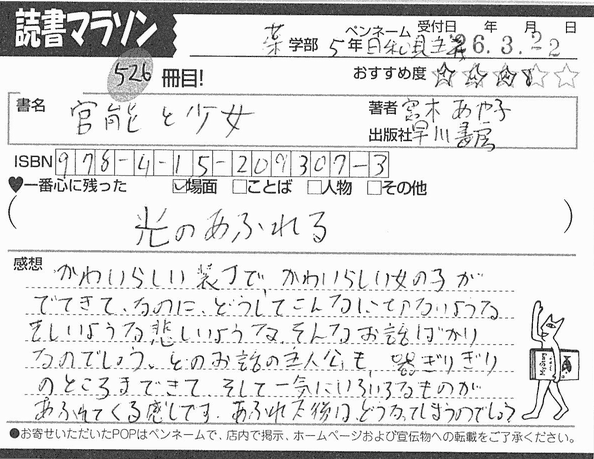 読書マラソン
ペンネーム 受付日 年 月 日
薬学部 5年 26.3.22
526冊目!
おすすめ度
書名 官能と少女
著者 宮木あや子
出版社 早川書房
ISBN 978-4-15-209307-3
♥一番心に残った ☑場面 □ことば □人物 □その他
(光のあふれる)
感想
かわいらしい装丁で、かわいらしい女の子が
でてきて、なのに、どうしてこんなに
ような悲しいような、そんなお話ばかり
なのでしょう。どのお話の主人公も、皆ぎりぎり
のところまできて、そして一気にいろいろなものが
あふれてくる感じです。あふれた後はどうなってしまうのでしょう
●お寄せいただいたPOPはペンネームで、店内で掲示、ホームページおよび宣伝物への転載をご了承ください。